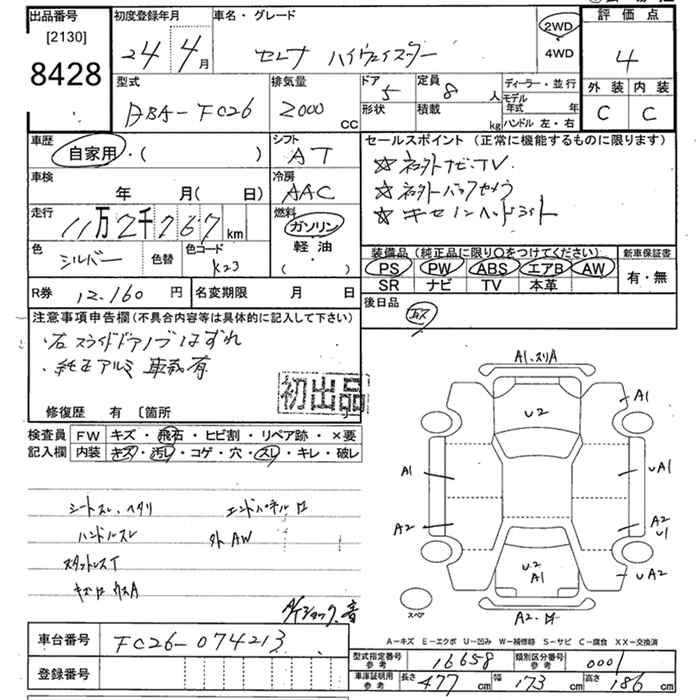 出品番号
[2130]
8428
初度登録年月
24 4月
車名・グレード
セレナ ハイウェイスター
2WD
4WD
評価点
4
外装 内装
C C
型式
DBA-FC26
排気量
2000 cc
ドア 5
定員 8人
形状
積載 kg
ディーラー・並行
モデル年式 年
ハンドル 左・右
車歴
自家用・( )
シフト
AT
セールスポイント (正常に機能するものに限ります)
☆社外ナビ・TV
☆社外バックカメラ
☆キセノンヘッドライト
車検
年 月( 日)
冷房
AAC
走行
11万2千767km
燃料
ガソリン
軽油
( )
色
シルバー
色替
色コード
K23
装備品 (純正品に限り○をつけてください)
PS PW ABS エアB AW
SR ナビ TV 本革
新車保証書
有・無
R券 12,160円
名変期限 月 日
後日品
注意事項申告欄(不具合内容等は具体的に記入して下さい)
・右スライドドアノブはずれ
・純正アルミ 車載有
初出品
修復歴 有 〔箇所
検査員
記入欄
FW キズ・飛石・ヒビ割・リペア跡・×要
内装 キズ・汚レ・コゲ・穴・スレ・キレ・破レ
シートスレ、ヘタリ
エンドパネルロ
ハンドルスレ
外AW
スタットレスT
A1.スリA
U2
A1
A1
A1
UA1
A2
A2
U1
U2
A1
UA2
スペア
A2.
A-キズ E-エクボ U-凹み W-補修跡 S-サビ C-腐食 XX-交換済
車台番号
FC26-074213
登録番号
型式指定番号
参考
16658
類別区分番号
参考
0001
車庫証明用
参考
長さ 477cm 幅 173cm 高さ 186cm